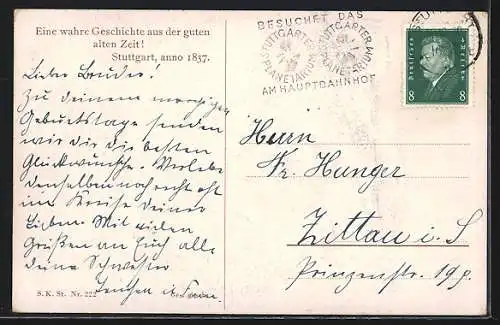 Eine wahre Geschichte aus der guten
alten Zeit!
Stuttgart, anno 1837.
Lieber Bruder!
Zu deinem morgigen
Geburtstage senden
wir dir die besten
Glückwünsche. Verlebe
denselben noch recht oft
im Kreise deiner
Lieben. Mit vielen
Grüßen an Euch alle
deine Schwester
S. K. St. Nr. 222
BESUCHET DAS
STUTTGARTER PLANETARIUM
STUTTGARTER PLANETARIUM
AM HAUPTBAHNHOF
STUTTGART
Deutsches Reich
8 8
Herrn
Fr. Hunger
Zittau i. S
Prinzenstr 19p.